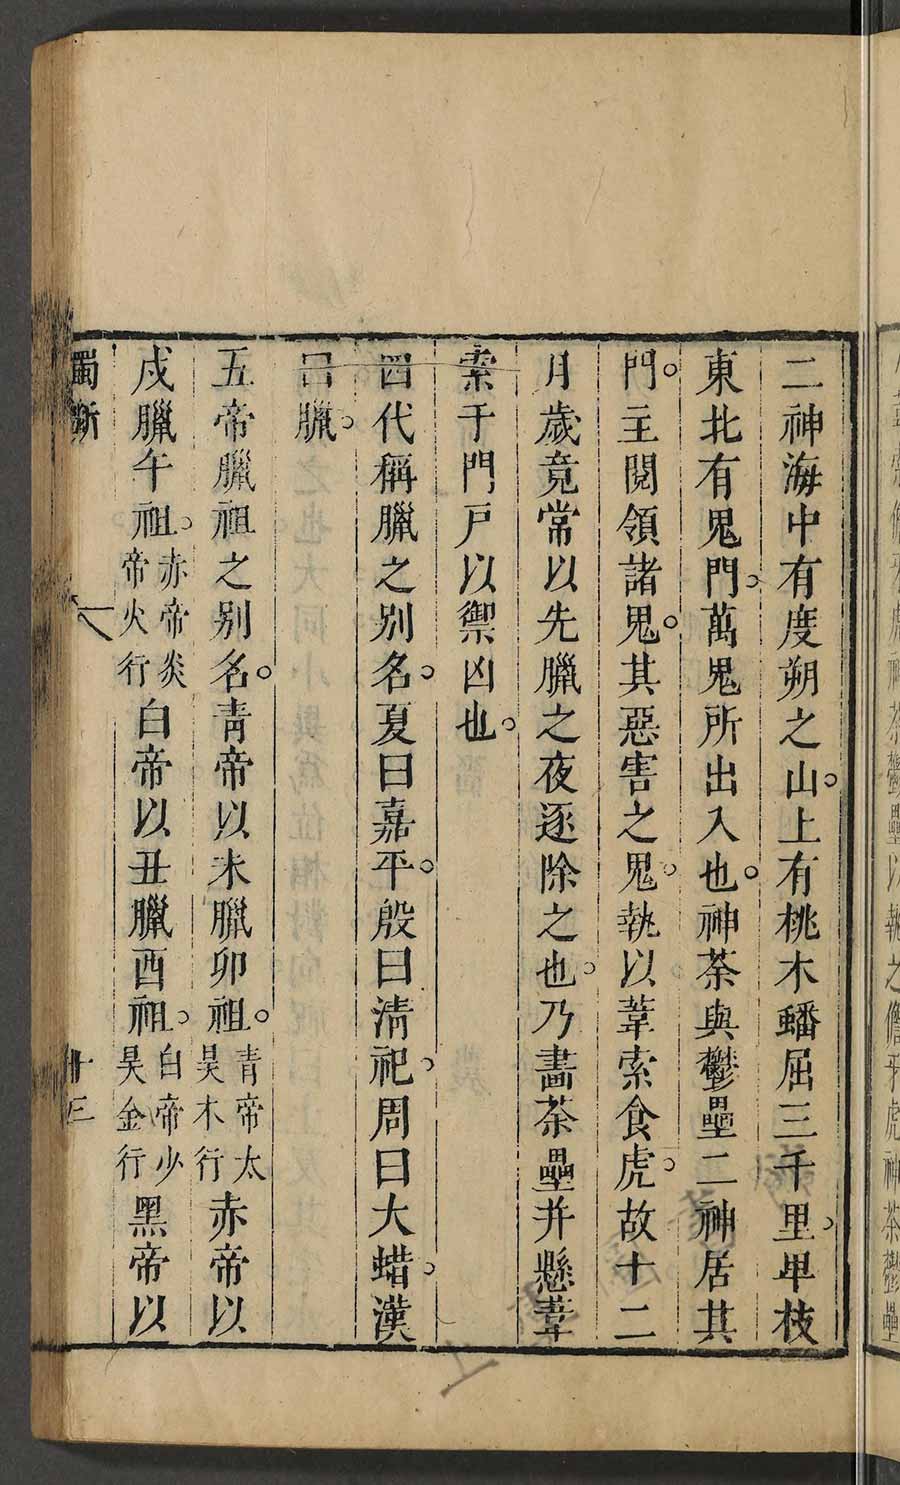 二神海中有度朔之山。上有桃木蟠屈三千里。卑枝
東北有鬼門。萬鬼所出入也。神荼與鬱壘二神居其
門。主閱領諸鬼。其惡害之鬼。執以葦索食虎。故十二
月歲竟常以先臘之夜逐除之也。乃畫荼壘并懸葦
索于門戶以禦凶也。
四代稱臘之別名。夏曰嘉平。殷曰清祀。周曰大蜡。漢
曰臘。
五帝臘祖之別名。青帝以未臘卯祖。青帝太昊木行赤帝以
戌臘午祖。赤帝炎帝火行白帝以丑臘酉祖。白帝少昊金行黑帝以
獨斷 十三